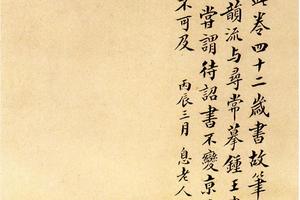 此卷四十二歲書故筆
韻流与尋常摹鍾王者
嘗謂待詔書不變京
不可及
丙辰三月 息老人